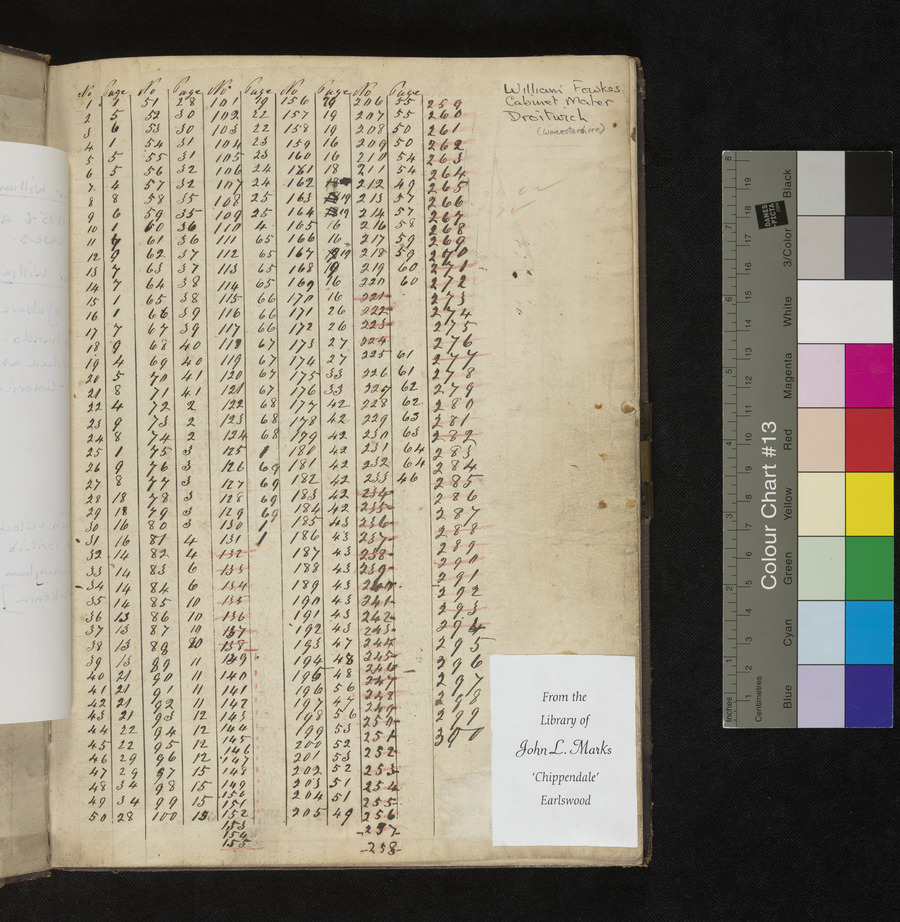 No Page No Page No Page No Page No Page
William Fowkes
Cabinet Maker
Droitwich
(Worcestershire)
1 1 51 28 101 29 156 29 206 55 259
2 5 52 30 102 22 157 19 207 55 260
3 6 53 30 103 22 158 19 208 50 261
4 1 54 31 104 23 159 16 209 50 262
5 5 55 31 105 23 160 16 210 54 263
6 5 56 32 106 24 161 18 211 54 264
7 4 57 32 107 24 162 212 49 265
8 8 58 35 108 25 163 19 213 57 266
9 6 59 35 109 25 164 19 214 57 267
10 1 60 36 110 4 165 16 216 58 268
11 7 61 36 111 65 166 16 217 59 269
12 9 62 37 112 65 167 19 218 59 270
13 7 63 37 113 65 168 19 219 60 271
14 7 64 38 114 65 169 16 220 60 272
15 1 65 38 115 66 170 16 221 273
16 1 66 39 116 66 171 26 222 274
17 7 67 39 117 66 172 26 223 275
18 9 68 40 118 67 173 27 224 276
19 4 69 40 119 67 174 27 225 61 277
20 5 70 41 120 67 175 33 226 61 278
21 8 71 41 121 67 176 33 227 62 279
22 4 72 2 122 68 177 42 228 62 280
23 9 73 2 123 68 178 42 229 63 281
24 8 74 2 124 68 179 42 230 63 282
25 1 75 3 125 1 180 42 231 64 283
26 9 76 3 126 69 181 42 232 64 284
27 8 77 3 127 69 182 42 233 46 285
28 18 78 3 128 69 183 42 234 286
29 18 79 3 129 69 184 42 235 287
30 16 80 3 130 1 185 43 236 288
31 16 81 4 131 1 186 43 237 289
32 14 82 4 132 187 43 238 290
33 14 83 6 133 188 43 239 291
34 14 84 6 134 189 43 240 292
35 14 85 10 135 190 43 241 293
36 13 86 10 136 191 43 242 294
37 13 87 10 137 192 43 243 295
38 13 89 10 138 193 47 244 296
39 13 89 11 139 194 48 245 297
40 21 90 11 140 195 48 246 298
41 21 91 11 141 196 56 247 299
42 21 92 11 142 197 47 248 300
43 21 93 12 143 198 56 249
44 22 94 12 144 199 53 250
45 22 95 12 145 200 52 251
46 29 96 12 146 201 53 252
47 29 97 15 147 202 52 253
48 34 98 15 148 203 51 254
49 34 99 15 149 204 51 255
50 28 100 15 150 205 49 256
151 257
152 258
153
154
155
From the
Library of
John L. Marks
'Chippendale'
Earlswood
Colour Chart #13
Inches
Centimetres
DANES PICTA .COM
Blue Cyan Green Yellow Red Magenta White 3/Color Black
1 2 3 4 5 6 7 8
1 2 3 4 5 6 7 8 9 10 11 12 13 14 15 16 17 18 19